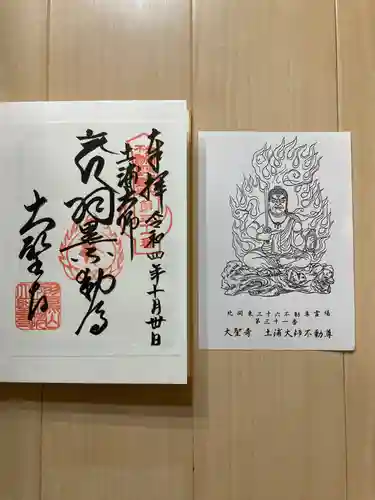 奉拝
令和四年十月卅日
土浦大師
大聖寺
北関東三十六不動尊霊場
第三十一番
大聖寺 土浦大師不動尊